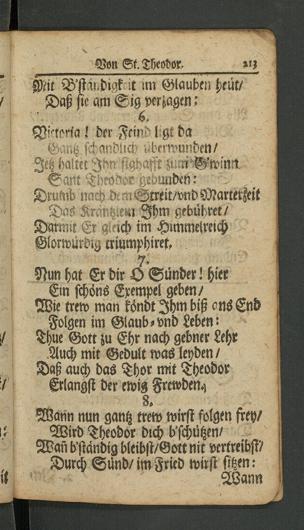 Von St. Theodor. 213
Mit B'ständigkeit im Glauben heüt/
Daß sie am Sig verzagen:
6.
Victoria! der Feind ligt da
Gantz schandlich überwunden/
Jetz haltet Ihn sighafft zum G'winn
Sant Theodor gebunden:
Drumb nach dem Streit/vnd Marterzeit
Das Kräntzlein Ihm gebühret/
Darmit Er gleich im Himmelreich
Glorwürdig triumphiret.
7.
Nun hat Er dir O Sünder! hier
Ein schöns Exempel geben/
Wie trew man köndt Ihm biß ans End
Folgen im Glaub- vnd Leben:
Thue Gott zu Ehr nach gebner Lehr
Auch mit Gedult was leyden/
Daß auch das Thor mit Theodor
Erlangst der ewig Frewden.
8.
Wann nun gantz trew wirst folgen frey/
Wird Theodor dich b'schützen/
Wañ b'ständig bleibst/ Gott nit vertreibst/
Durch Sünd/ im Fried wirst sitzen:
Wann